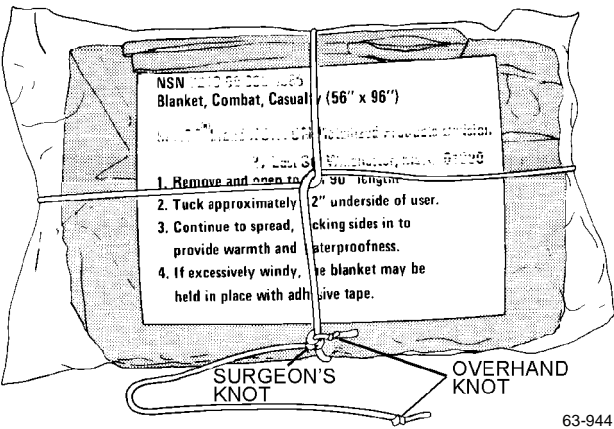 NSN
Blanket, Combat, Casualty (56" x 96")
Products Division
1. Remove and open to 96" length
2. Tuck approximately 2" underside of user.
3. Continue to spread, cking sides in to
provide warmth and aterproofness.
4. If excessively windy, he blanket may be
held in place with adh sive tape.
SURGEON'S
KNOT
OVERHAND
KNOT
63-944